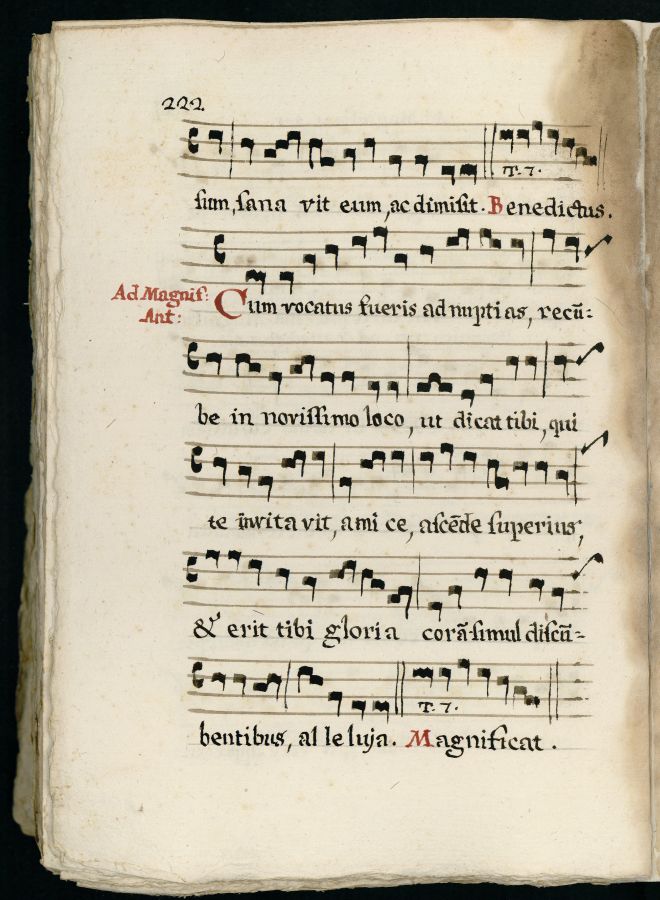 222.
T. 7.
sum, sana vit eum, ac dimisit. Benedictus.
Ad Magnif:
Ant:
Cum vocatus fueris ad nupti as, recū=
be in novissimo loco, ut dicat tibi, qui
te invita vit, a mi ce, ascēde superius,
& erit tibi gloria corā simul discū=
T. 7.
bentibus, al le luja. Magnificat.